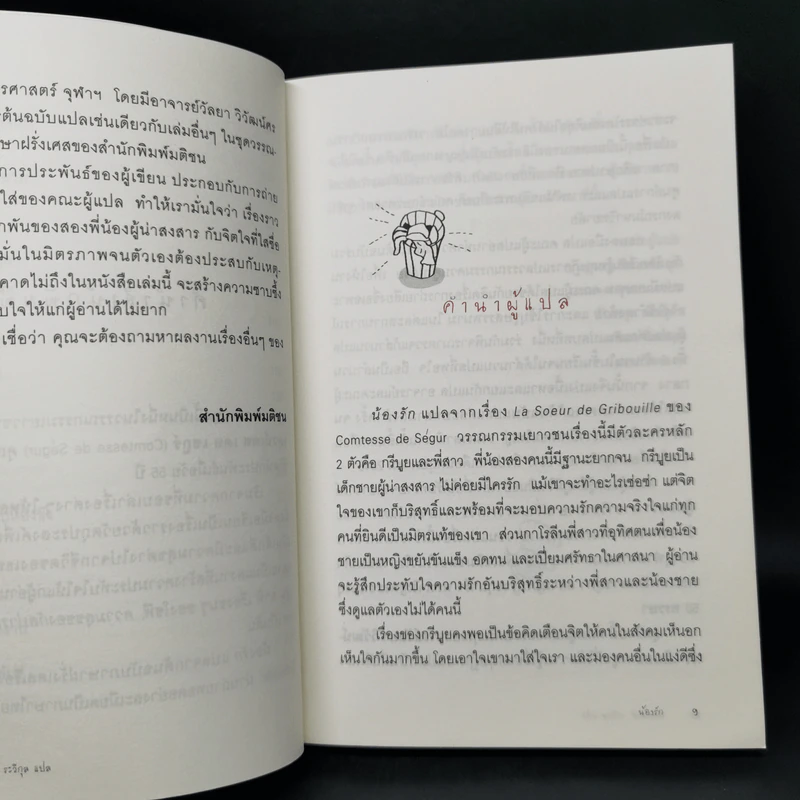 รศาสตร์ จุฬาฯ โดยมีอาจารย์วัลยา วิวัฒน์ศร
ต้นฉบับแปลเช่นเดียวกับเล่มอื่นๆ ในชุดวรรณ-
ษาฝรั่งเศสของสำนักพิมพ์มติชน
การประพันธ์ของผู้เขียน ประกอบกับการถ่าย
ใส่ของคณะผู้แปล ทำให้เรามั่นใจว่า เรื่องราว
กพันของสองพี่น้องผู้น่าสงสาร กับจิตใจที่ใสซื่อ
มั่นในมิตรภาพจนตัวเองต้องประสบกับเหตุ-
คาดไม่ถึงในหนังสือเล่มนี้ จะสร้างความซาบซึ้ง
บใจให้แก่ผู้อ่านได้ไม่ยาก
เชื่อว่า คุณจะต้องถามหาผลงานเรื่องอื่นๆ ของ
สำนักพิมพ์มติชน
ระวีกุล แปล
คำนำผู้แปล
น้องรัก แปลจากเรื่อง La Soeur de Gribouille ของ
Comtesse de Ségur วรรณกรรมเยาวชนเรื่องนี้มีตัวละครหลัก
2 ตัวคือ กรีบูยและพี่สาว พี่น้องสองคนนี้มีฐานะยากจน กรีบูยเป็น
เด็กชายผู้น่าสงสาร ไม่ค่อยมีใครรัก แม้เขาจะทำอะไรเซ่อซ่า แต่จิต
ใจของเขาก็บริสุทธิ์และพร้อมที่จะมอบความรักความจริงใจแก่ทุก
คนที่ยินดีเป็นมิตรแท้ของเขา ส่วนกาโรลีนพี่สาวที่อุทิศตนเพื่อน้อง
ชายเป็นหญิงขยันขันแข็ง อดทน และเปี่ยมศรัทธาในศาสนา ผู้อ่าน
จะรู้สึกประทับใจความรักอันบริสุทธิ์ระหว่างพี่สาวและน้องชาย
ซึ่งดูแลตัวเองไม่ได้คนนี้
เรื่องของกรีบูยคงพอเป็นข้อคิดเตือนจิตให้คนในสังคมเห็นอก
เห็นใจกันมากขึ้น โดยเอาใจเขามาใส่ใจเรา และมองคนอื่นในแง่ดีซึ่ง
น้องรัก 9